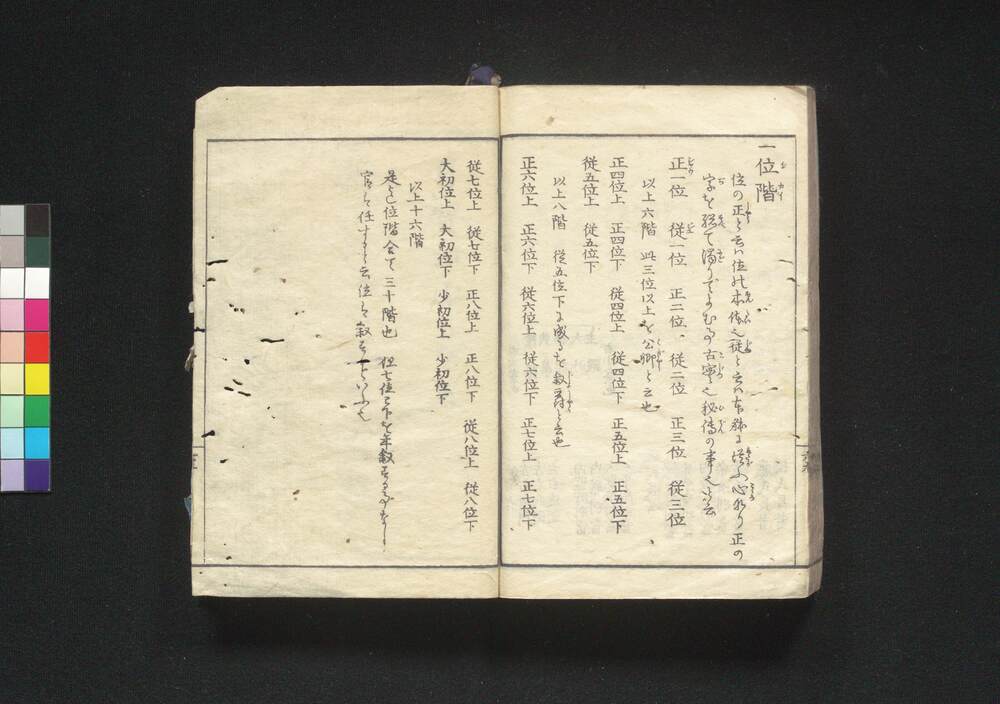 一位階
位の正と云は位の本体也従と云は本体に従ふ心なり正の
字を総て濁りてよむ事古実也秘伝の事也と云
正一位 従一位 正二位 従二位 正三位 従三位
以上六階 此三位以上を公卿と云也
正四位上 正四位下 従四位上 従四位下 正五位上 正五位下
従五位上 従五位下
以上八階 従五位下に成るを叙爵と云也
正六位上 正六位下 従六位上 従六位下 正七位上 正七位下
従七位上 従七位下 正八位上 正八位下 従八位上 従八位下
大初位上 大初位下 少初位上 少初位下
以上十六階
是まで位階合て三十階也 但七位以下を叙する事なし
官は任すると云位は叙すといふ也